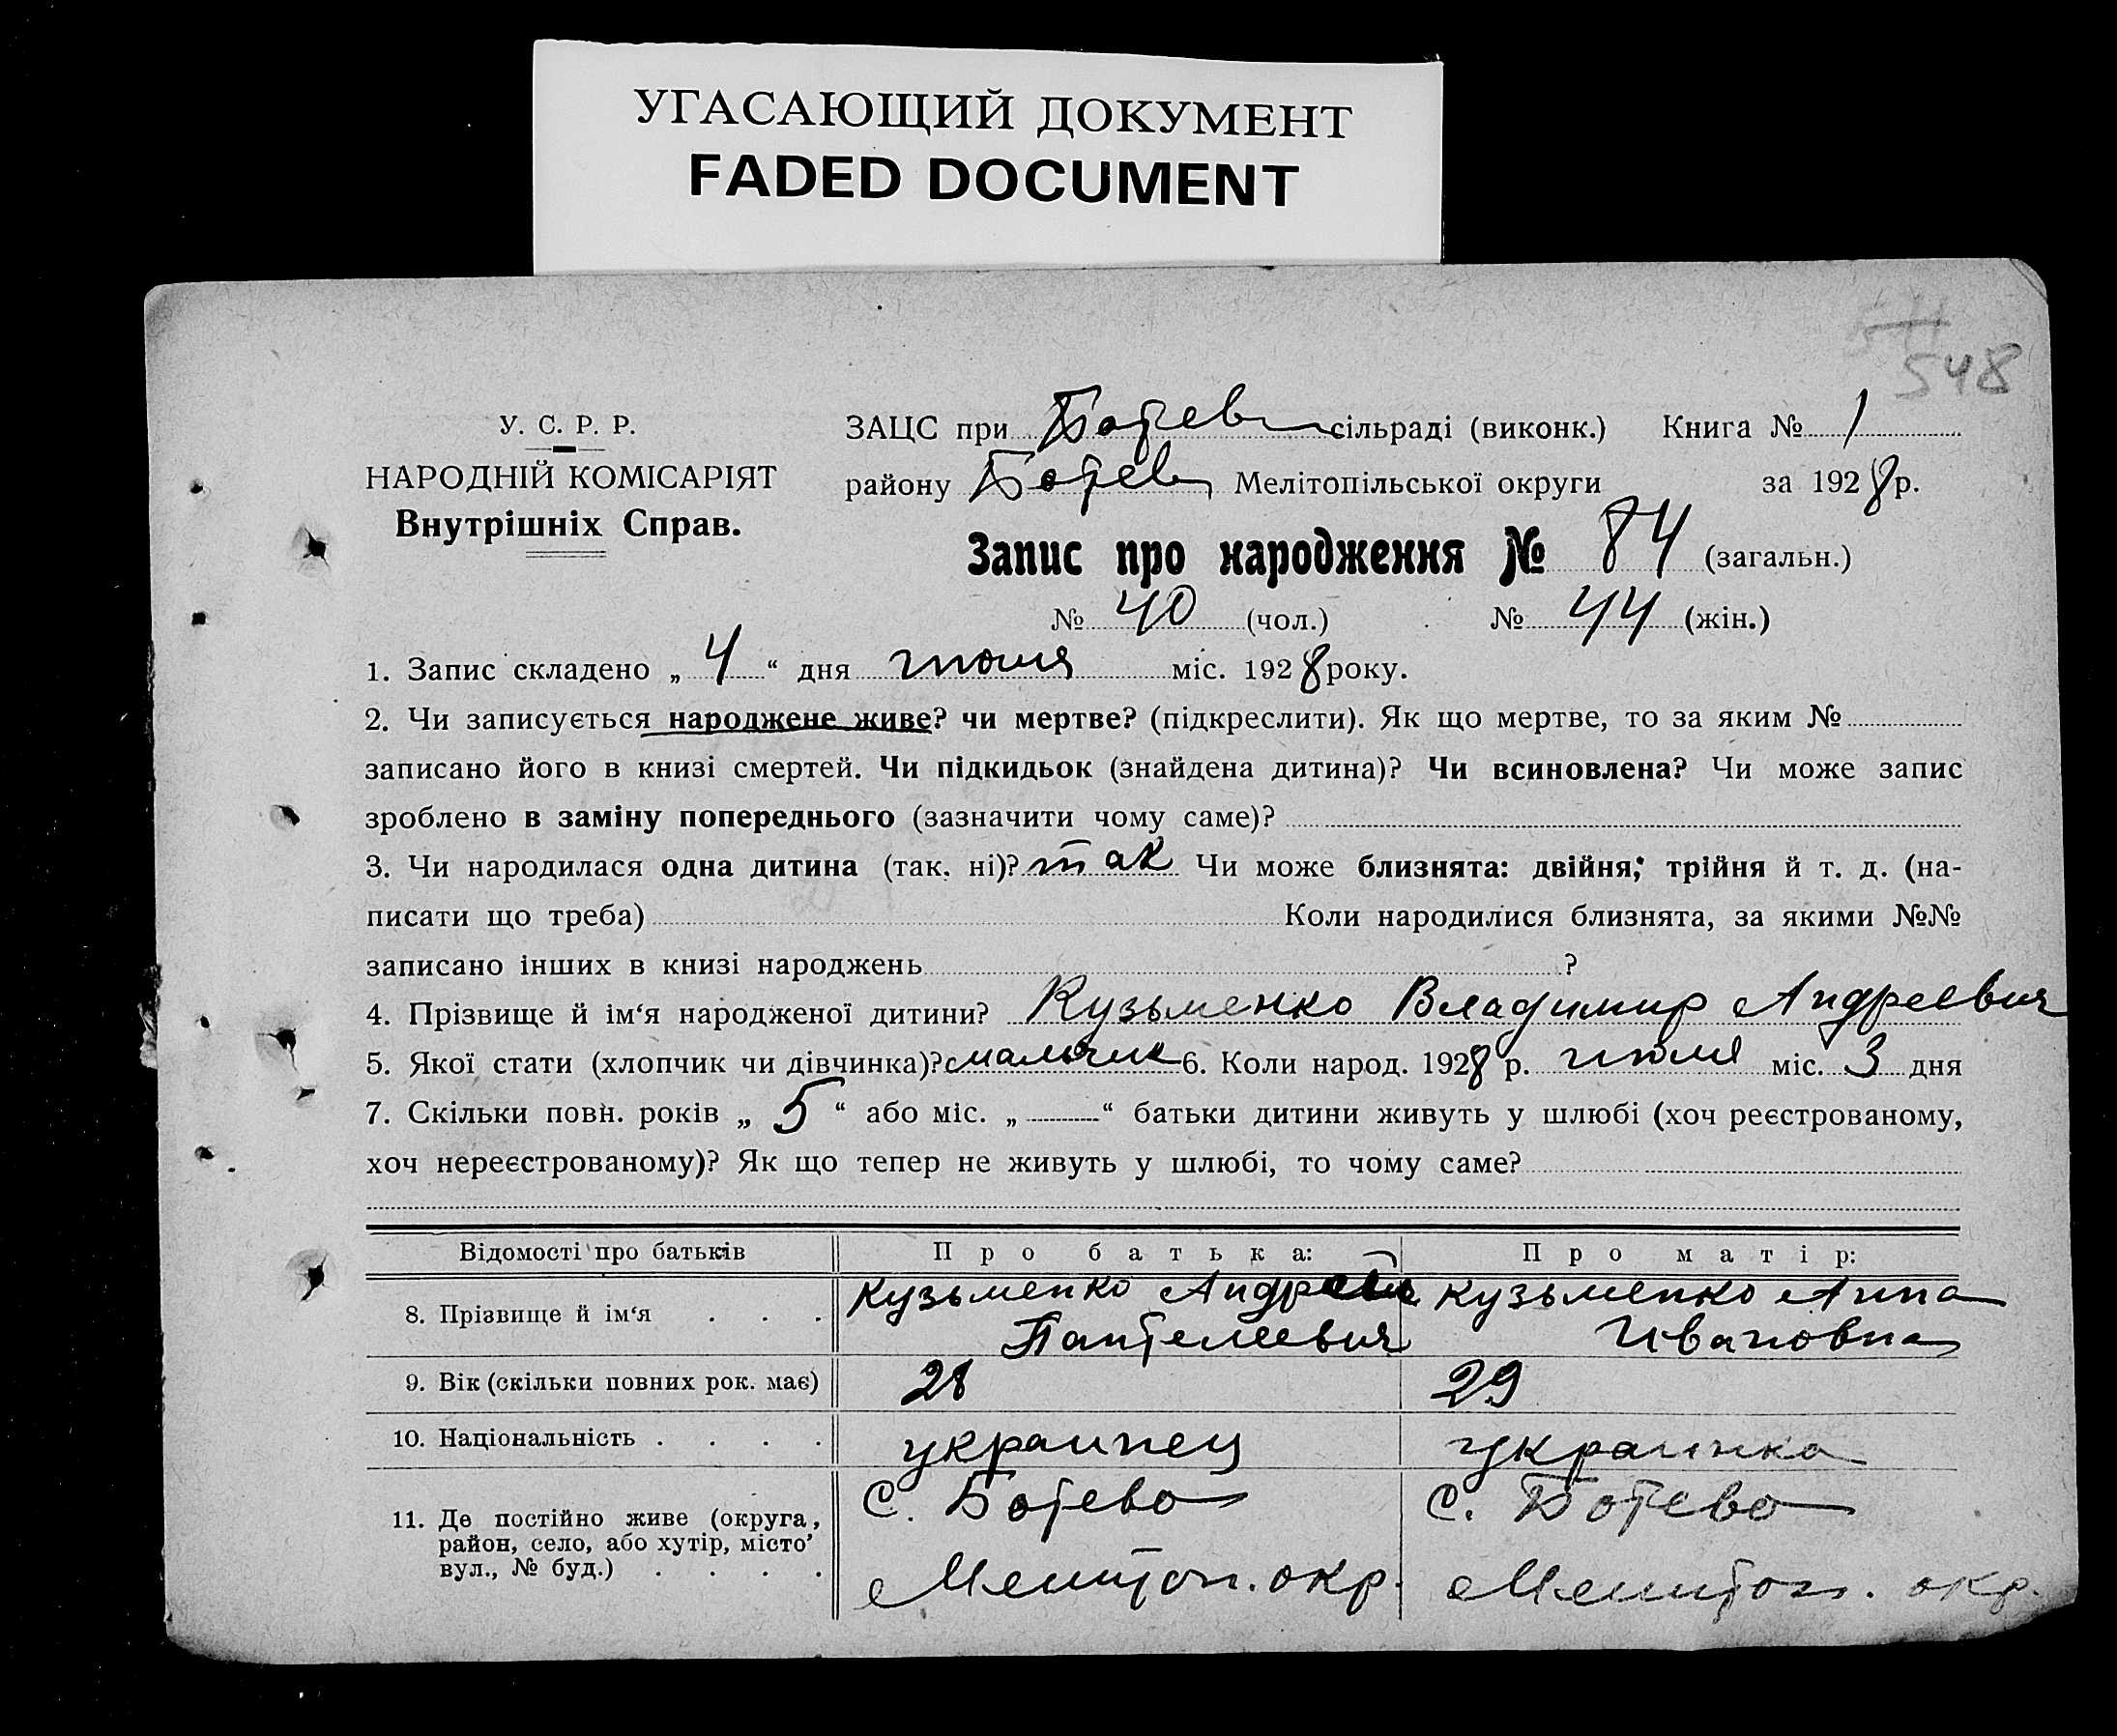 УГАСАЮЩИЙ ДОКУМЕНТ
FADED DOCUMENT
548
У. С. Р. Р.
НАРОДНІЙ КОМІСАРІЯТ
Внутрішніх Справ.
ЗАЦС при Ботев сільраді (виконк.) Книга № 1
району Ботев Мелітопільської округи за 1928 р.
Запис про народження № 84 (загальн.)
№ 40 (чол.) № 44 (жін.)
1. Запис складено „ 4 “ дня июля міс. 1928 року.
2. Чи записується народжене живе? чи мертве? (підкреслити). Як що мертве, то за яким №
записано його в книзі смертей. Чи підкидьок (знайдена дитина)? Чи всиновлена? Чи може запис
зроблено в заміну попереднього (зазначити чому саме)?
3. Чи народилася одна дитина (так. ні)? так Чи може близнята: двійня; трійня й т. д. (на-
писати що треба) Коли народилися близнята, за якими №№
записано інших в книзі народжень ?
4. Прізвище й ім‘я народженої дитини? Кузьменко Владимир Андреевич
5. Якої стати (хлопчик чи дівчинка)? мальчик 6. Коли народ. 1928 р. июля міс. 3 дня
7. Скільки повн. років „ 5 “ або міс. „ “ батьки дитини живуть у шлюбі (хоч реєстрованому,
хоч нереєстрованому)? Як що тепер не живуть у шлюбі, то чому саме?
Відомості про батьків Про батька: Про матір:
8. Прізвище й ім‘я . . . Кузьменко Андрей Пантелеевич Кузьменко Анна Ивановна
9. Вік (скільки повних рок. має) 28 29
10. Національність . . . . украинец украинка
11. Де постійно живе (округа, район, село, або хутір, місто’ вул., № буд.) . . . . С. Ботево Мелитоп. окр. С. Ботево Мелитоп. окр.